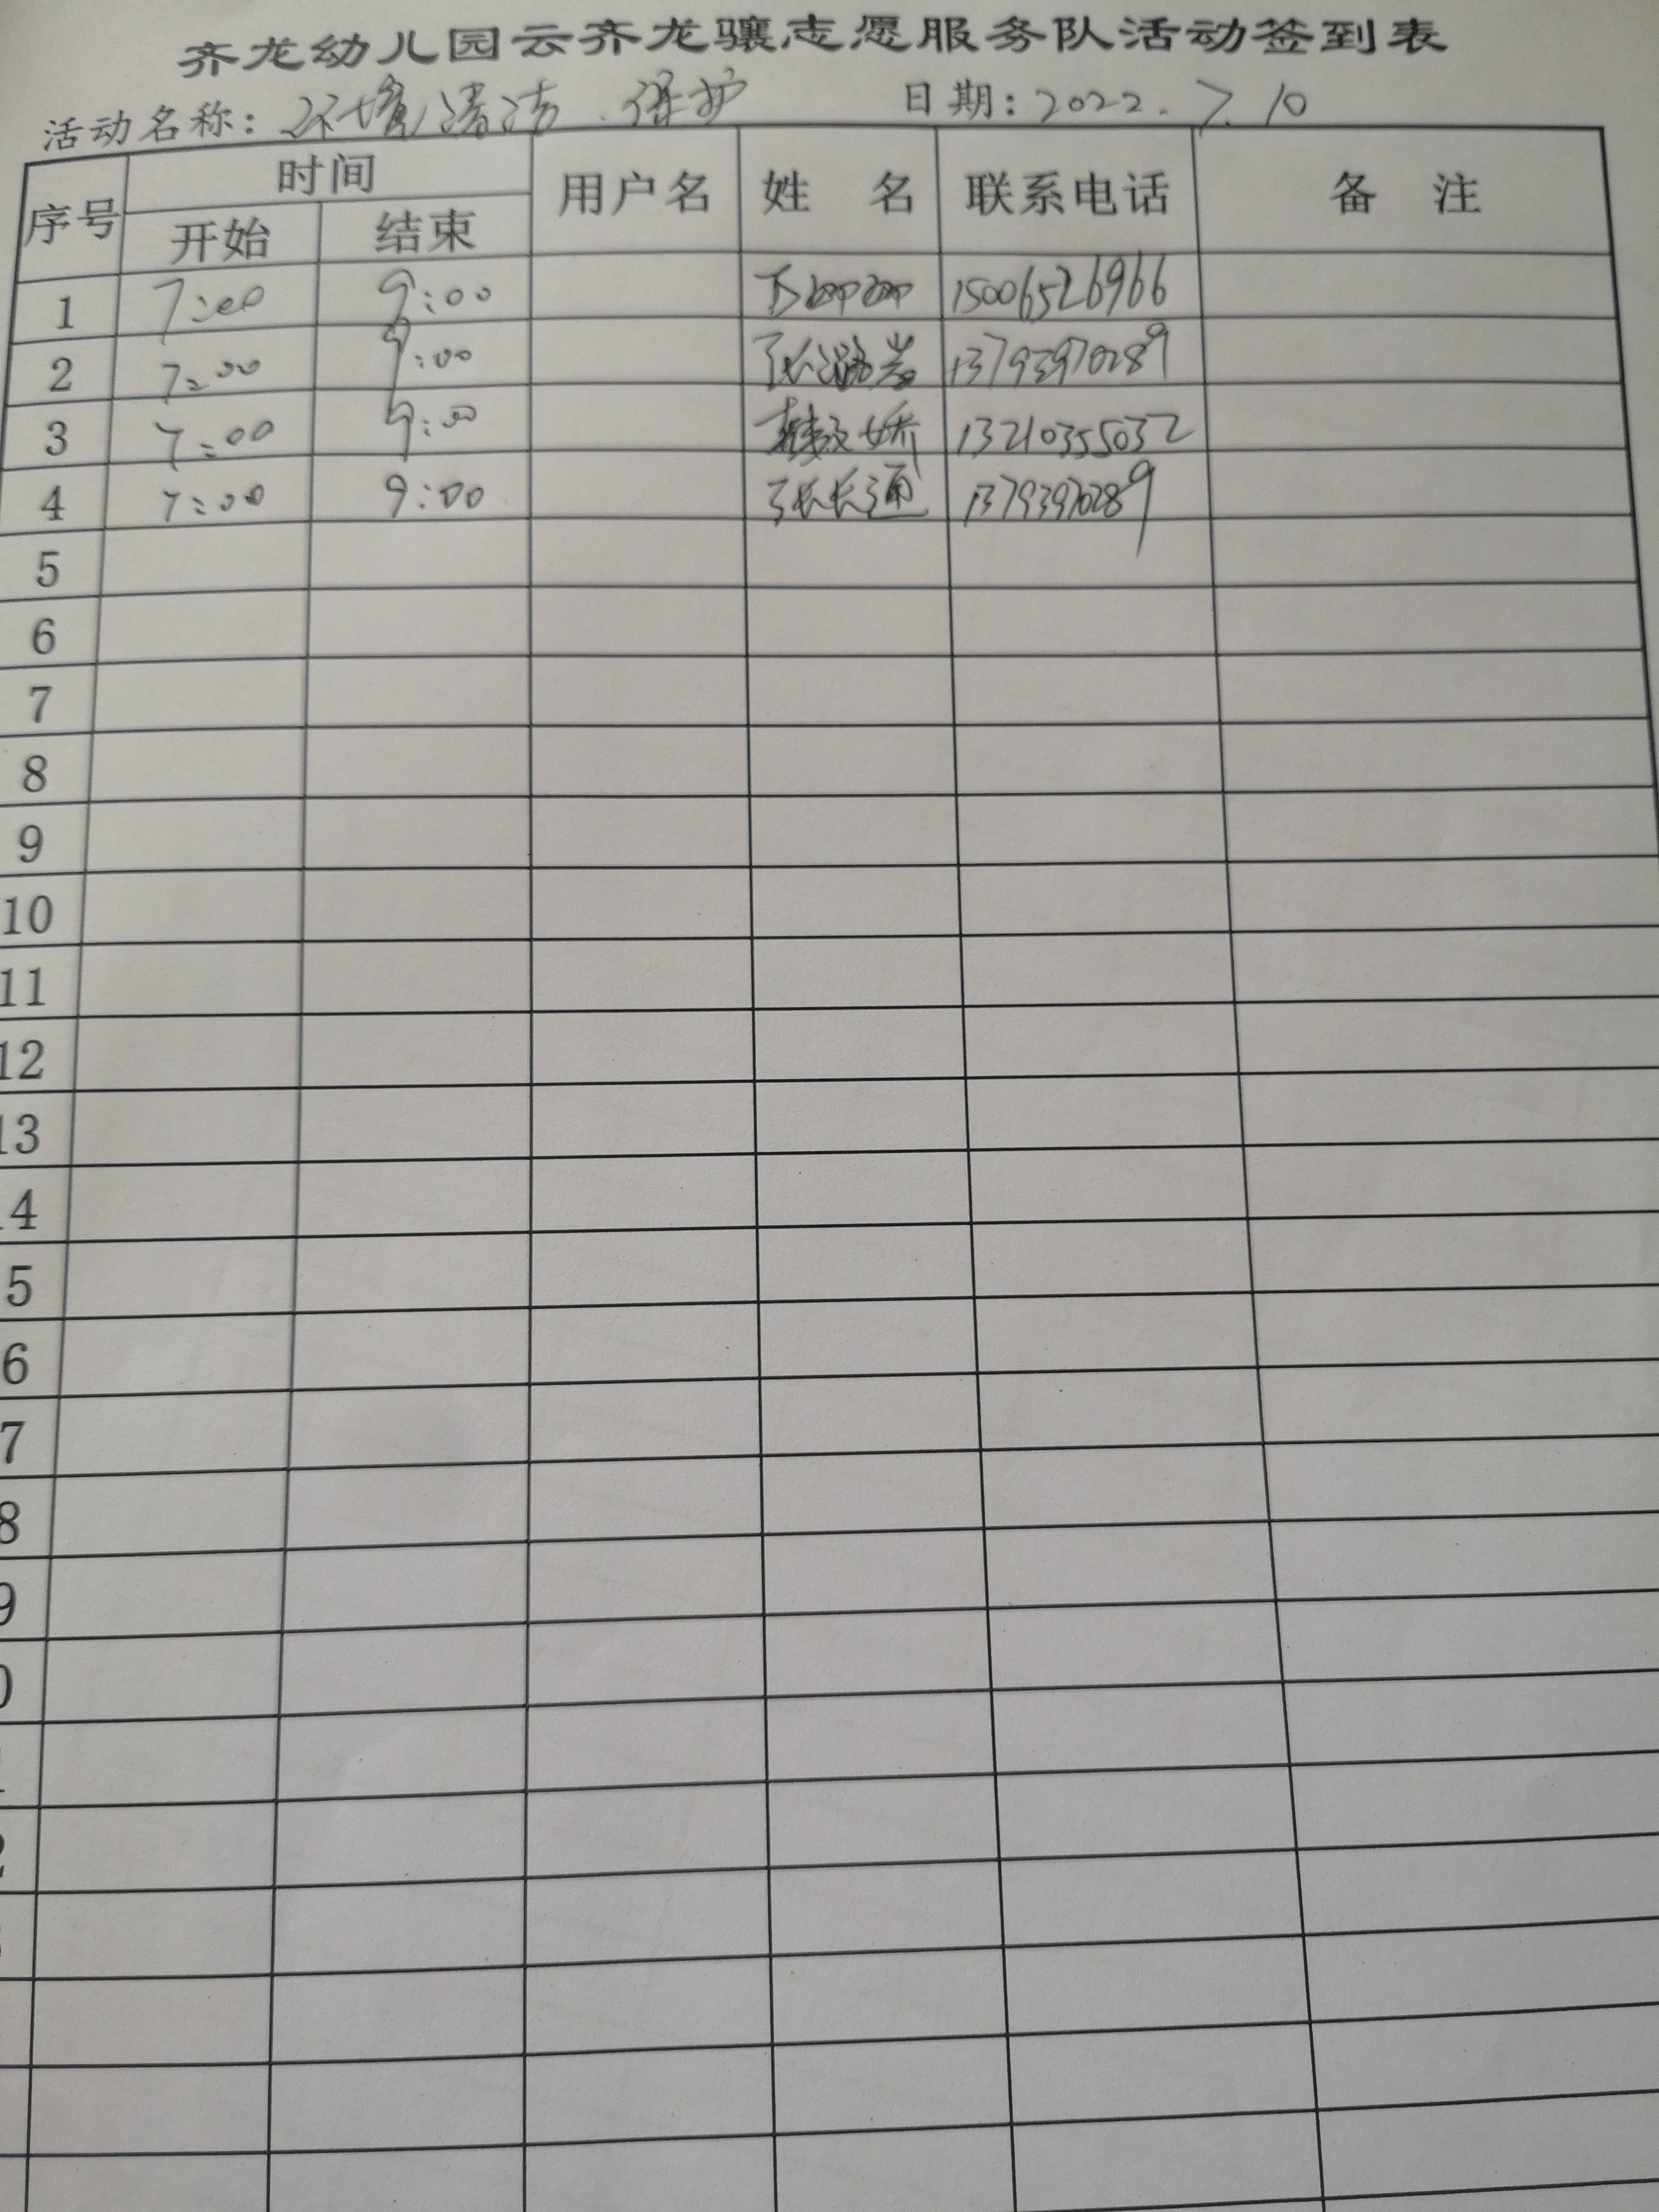 齐龙幼儿园云齐龙骧志愿服务队活动签到表
活动名称：环境清洁.保护 日期：2022.7.10
序号 时间 用户名 姓 名 联系电话 备 注
开始 结束
1 7:00 9:00 15006526966
2 7:00 9:00 13793970289
3 7:00 9:00 13210355032
4 7:00 9:00 张长通 13793970289
5
6
7
8
9
10
11
12
13
4
5
6
7
8
9
0
1
2